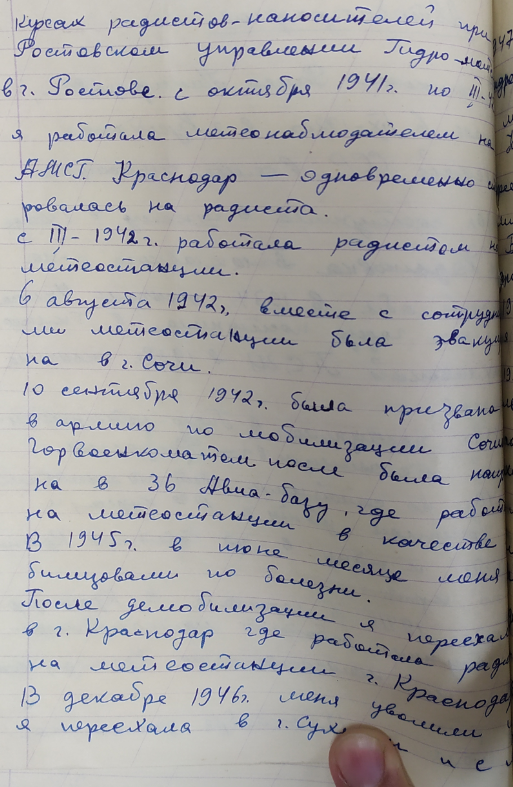 курсах радистов-наносителей при
Ростовском управлении Гидро-мет
в г. Ростове. с октября 1941г. по III-
я работала метеонаблюдателем на
АМСГ. Краснодар — одновременно
ровалась на радиста.
с III-1942г. работала радистом
метеостанции.
6 августа 1942г. вместе с сотрудн
ми метеостанции была эвакуи
на в г. Сочи.
10 сентября 1942г. была призвана
в армию по мобилизации Сочи
Горвоенкоматем после была напр
на в 36 Авиа-базу, где работ
на метеостанции в качестве
В 1945г. в июне месяце меня
билизовами по болезни.
После демобилизации я переехал
в г. Краснодар где работала ради
на метеостанции г. Краснодар
В декабре 1946г. меня уволили
я переехала в г. Сух